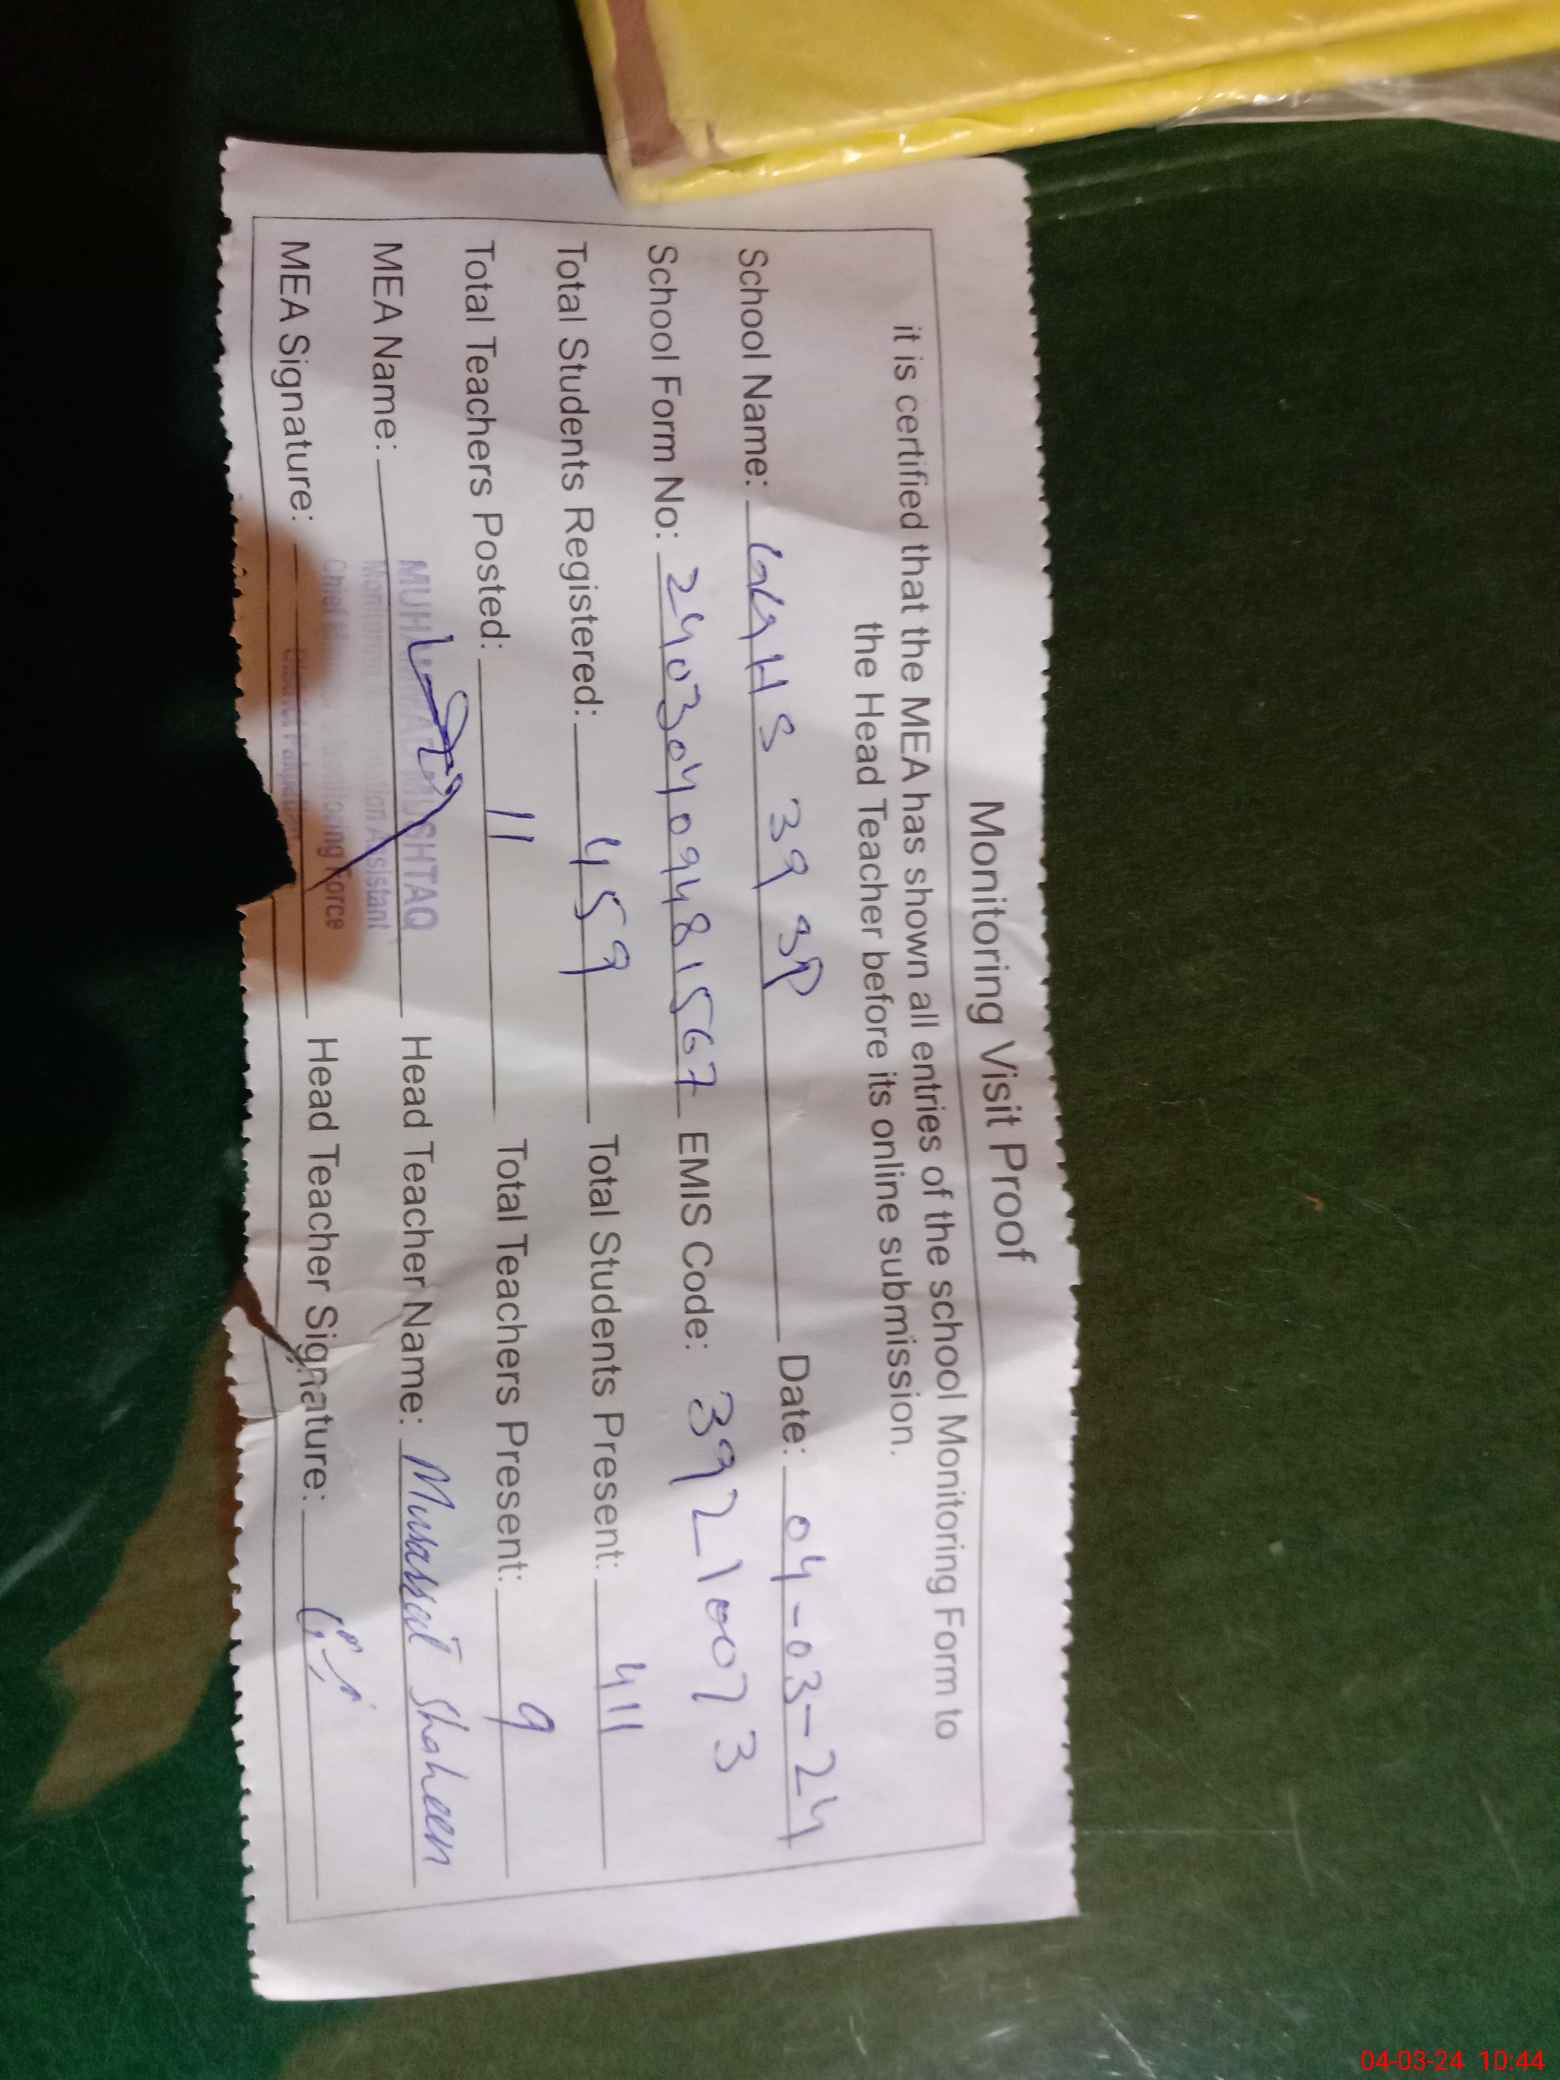 Monitoring Visit Proof
it is certified that the MEA has shown all entries of the school Monitoring Form to
the Head Teacher before its online submission.
School Name: GGHS 39 SP Date: 04-03-24
School Form No: 24030409481567 EMIS Code: 39210073
Total Students Registered: 459 Total Students Present: 411
Total Teachers Posted: 11 Total Teachers Present: 9
MEA Name: MUSHTAQ Head Teacher Name: Mussarat Shaheen
Assistant
MEA Signature: Monitoring Force Head Teacher Signature:
District Pakpattan
04-03-24 10:44